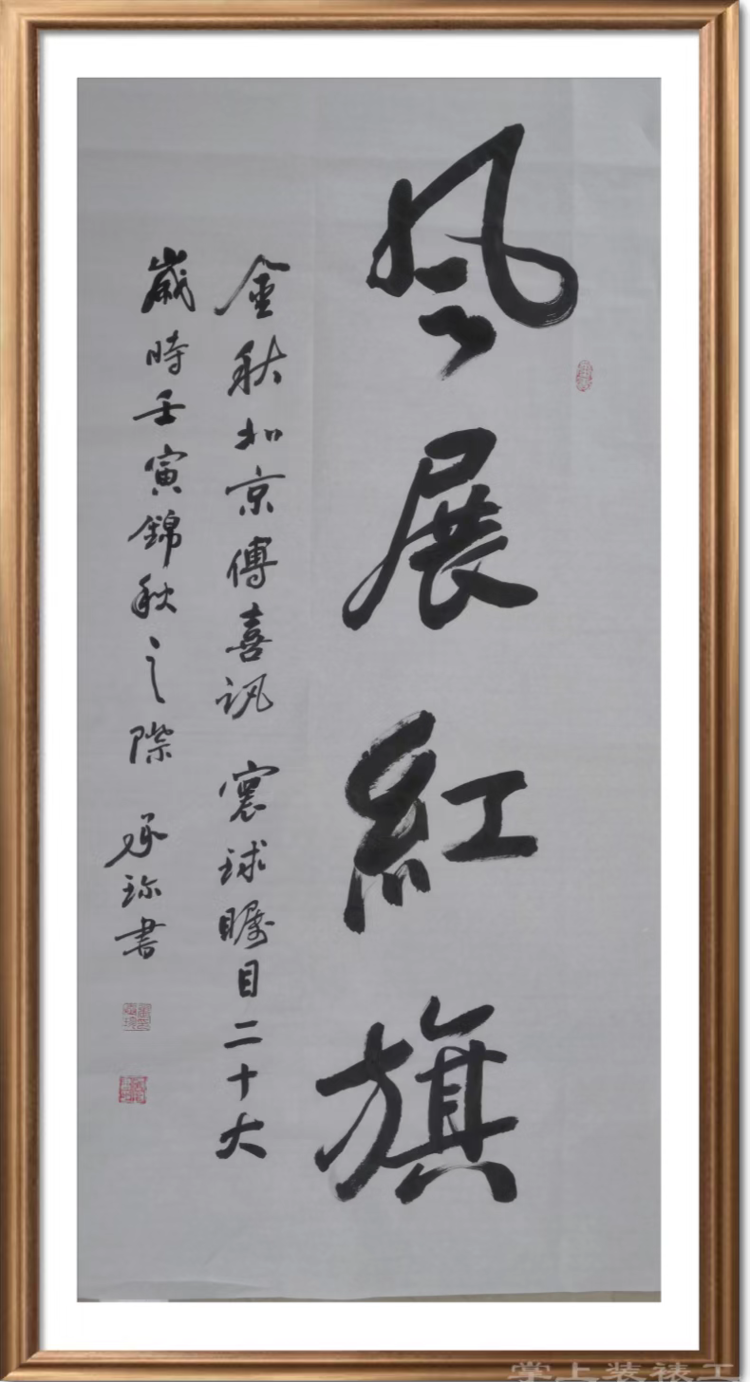 風展紅旗
金秋北京傳喜訊 寰球矚目二十大
歲時壬寅錦秋之際 承珎書
掌上装裱工